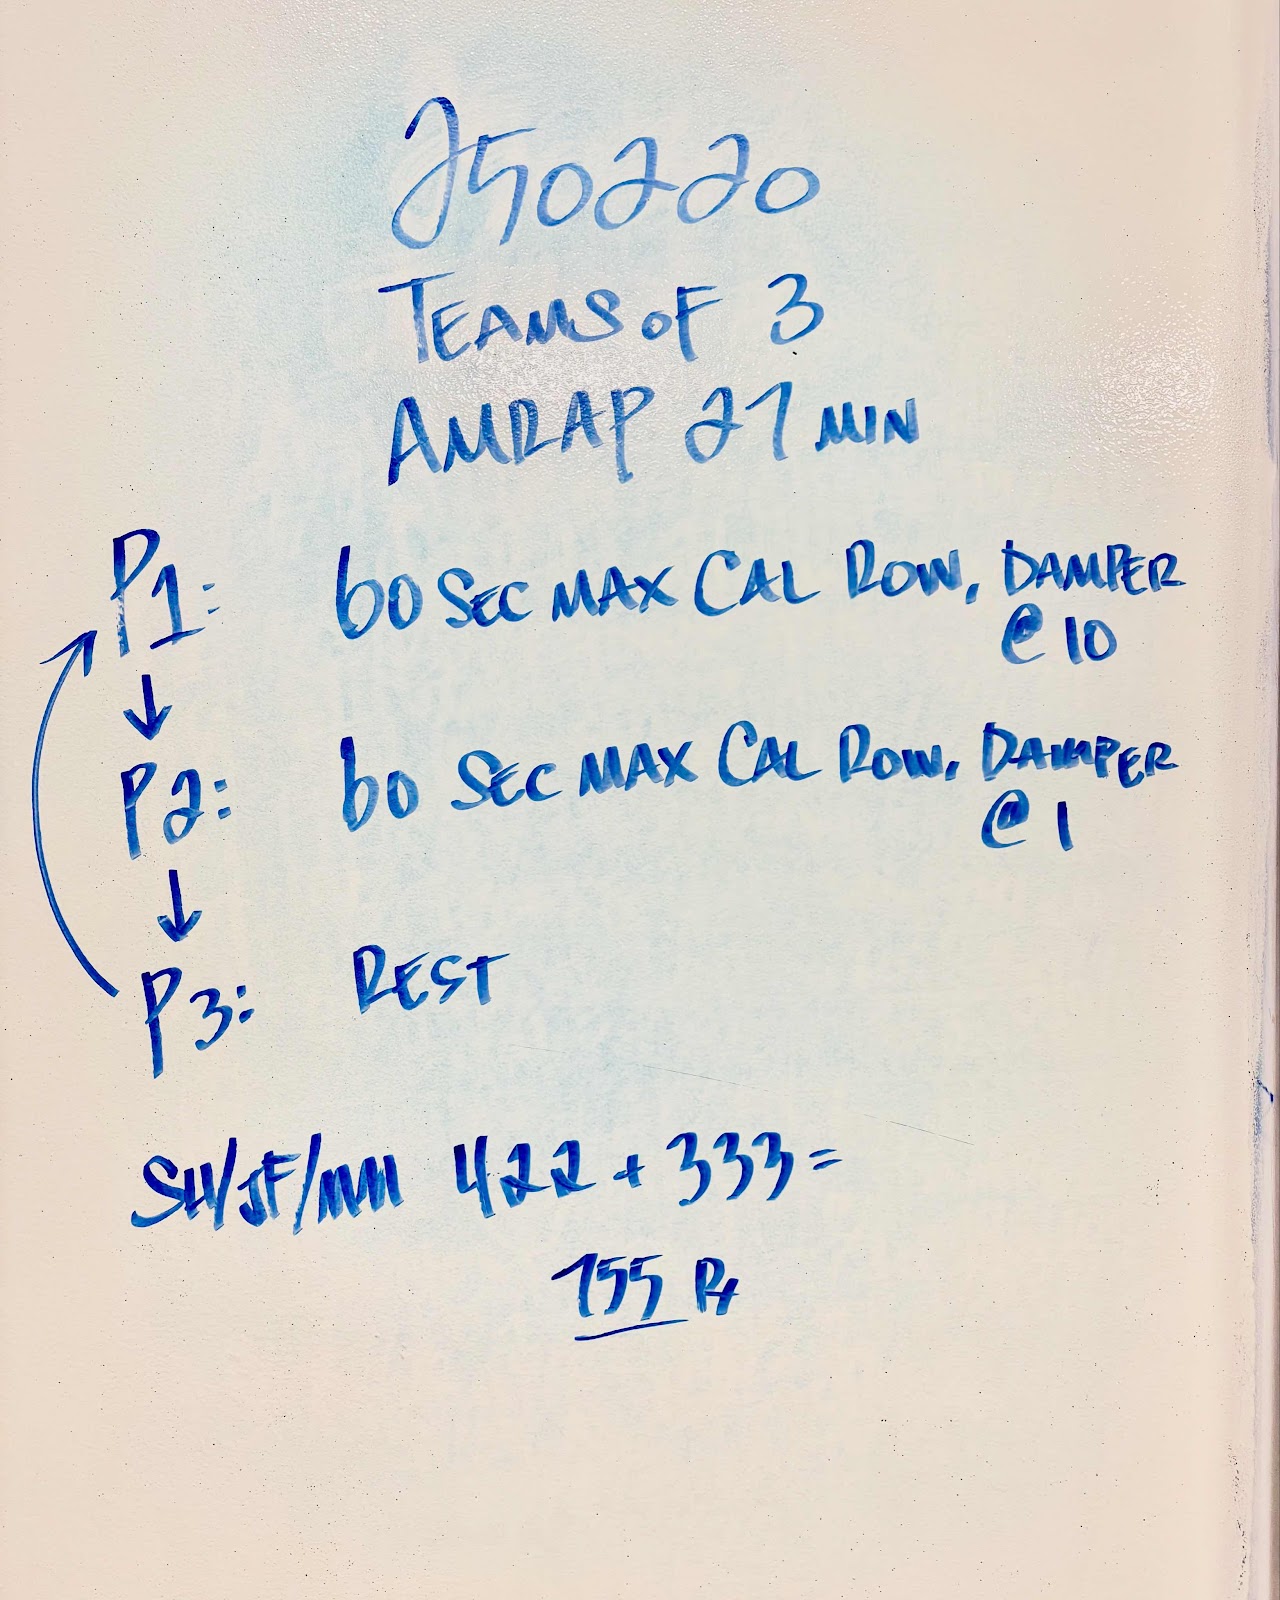 250220
TEAMS OF 3
AMRAP 27 MIN
P1: 60 SEC MAX CAL ROW, DAMPER
@ 10
↓
P2: 60 SEC MAX CAL ROW, DAMPER
@ 1
↓
P3: REST
SH/JF/MM 422 + 333 =
755 Rx